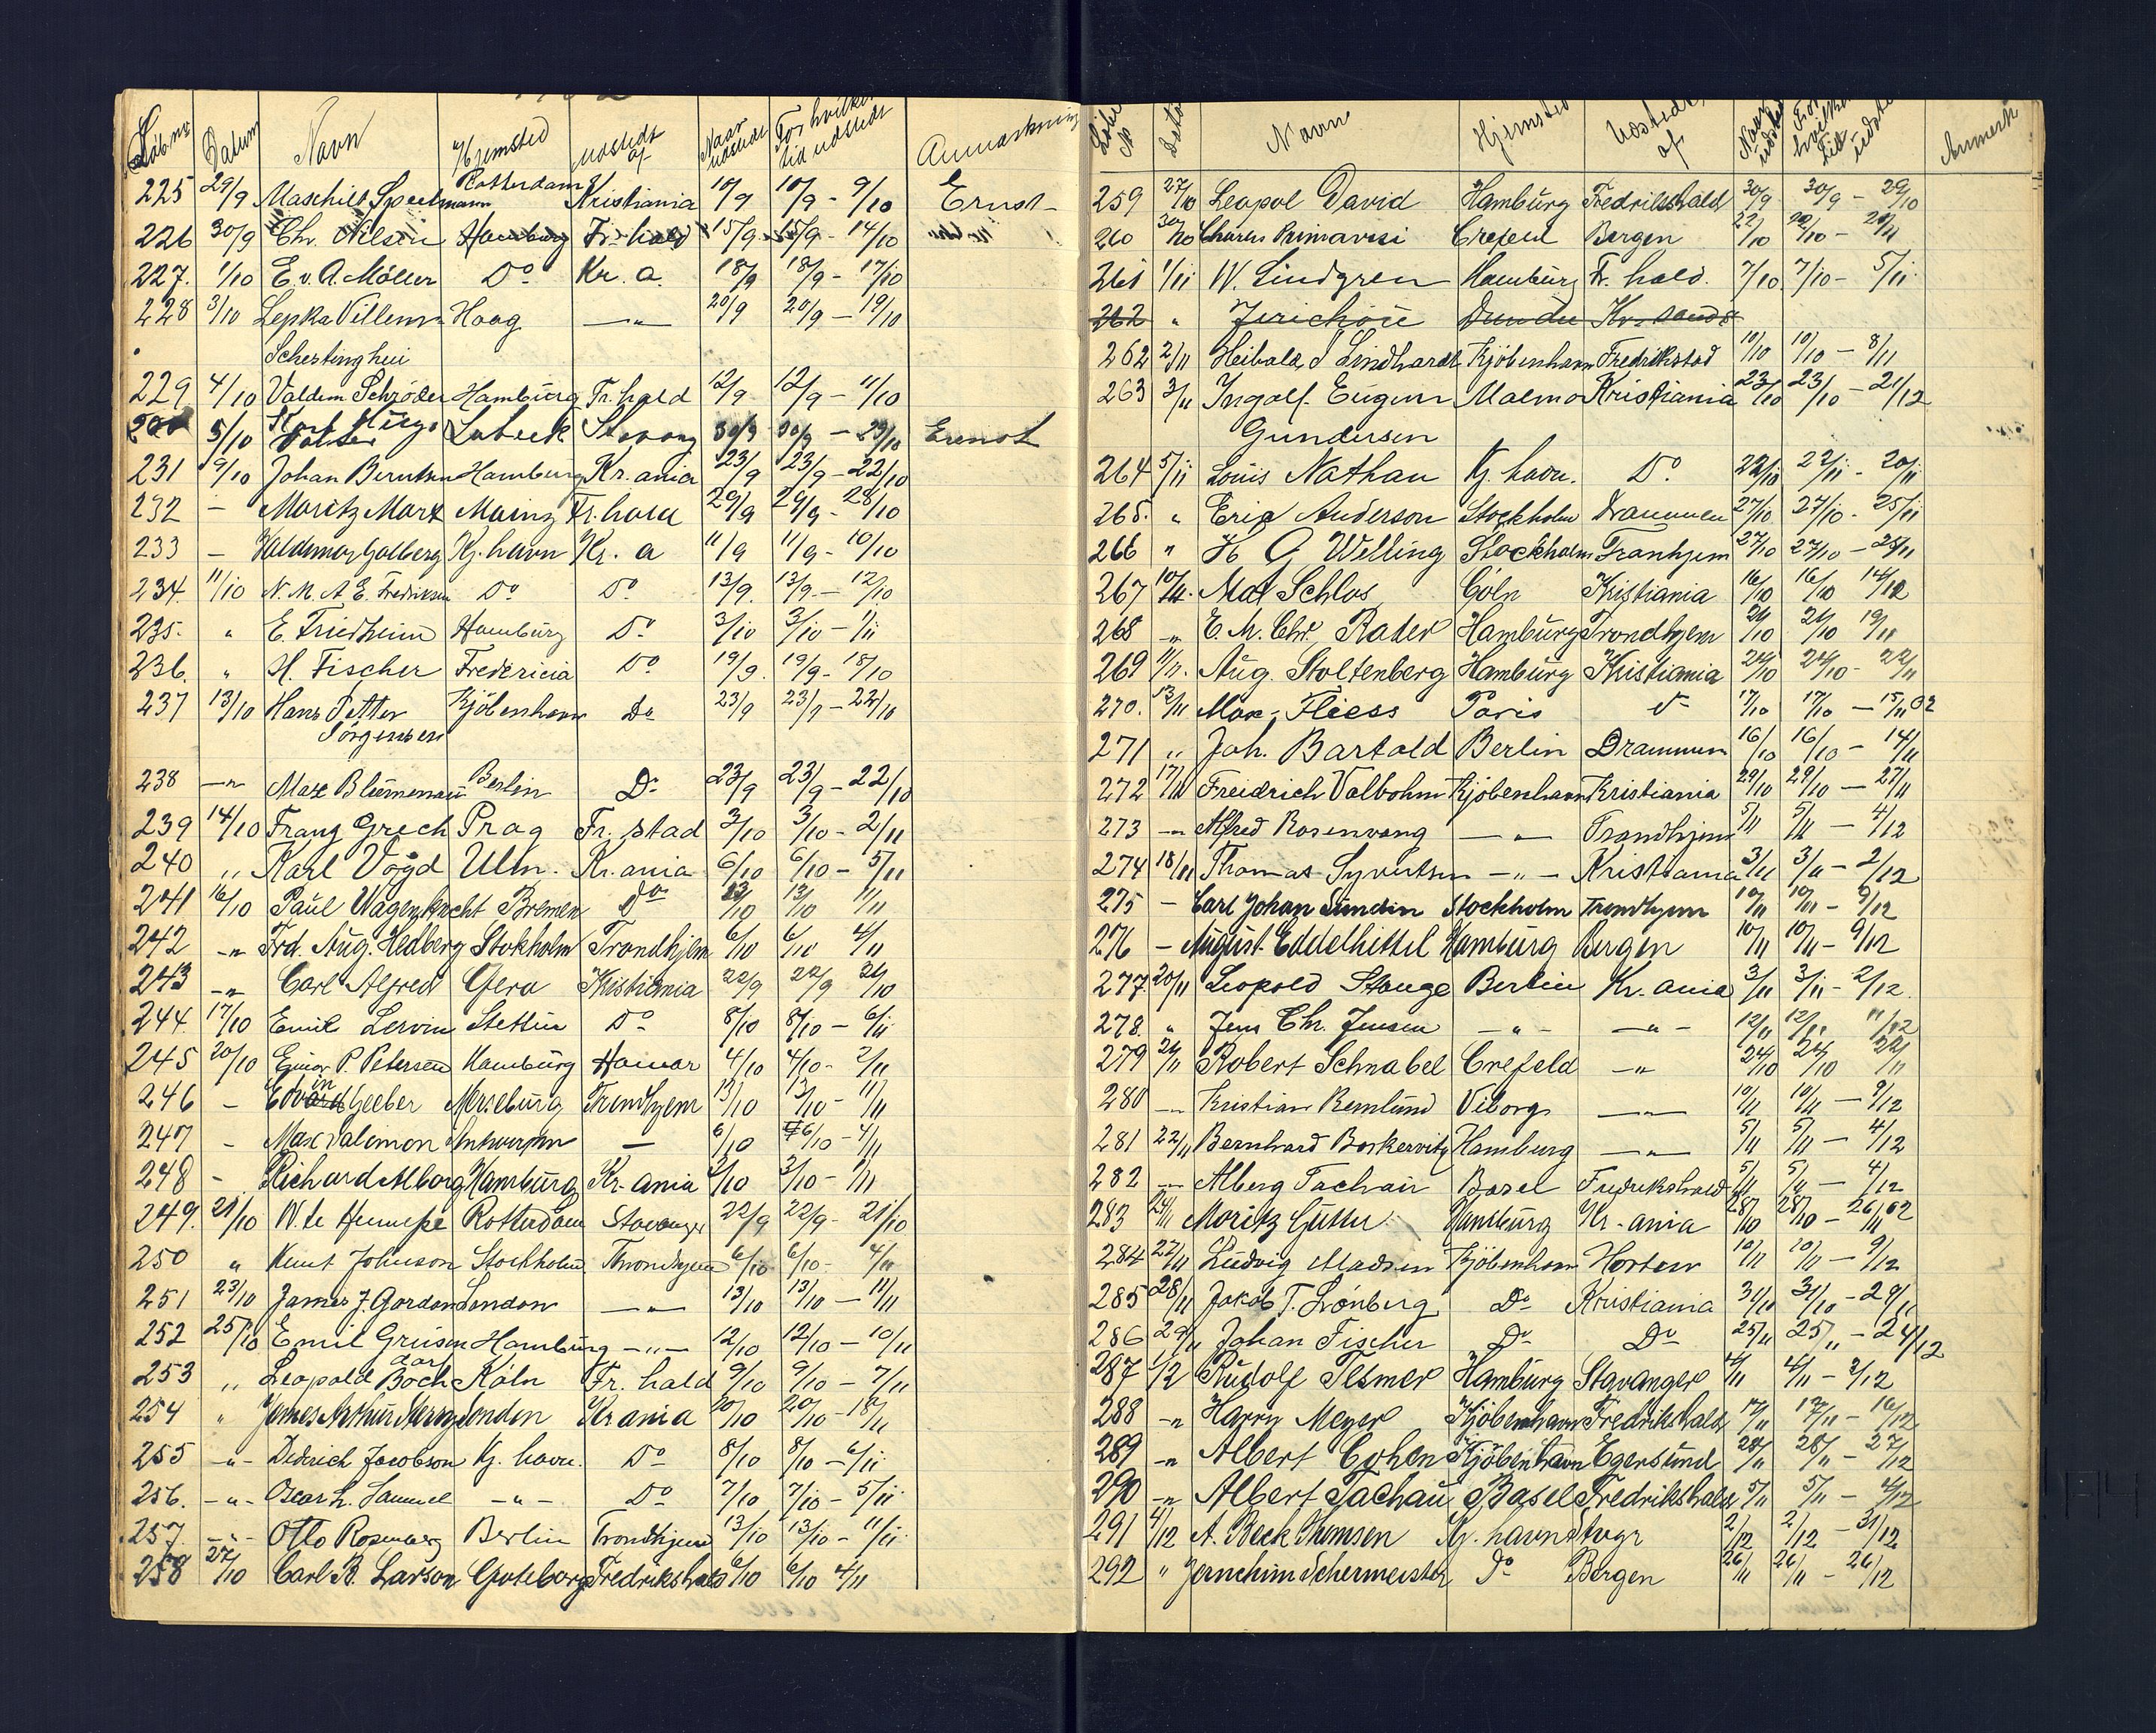 Löbnr. Datum Navn Hjemsted udstedt af Naar udstedt For hvilken tid udstedt Anmærkning
225 29/9 Maschiel Speelmann Rotterdam Kristiania 10/9 10/9 - 9/10 Ernst
226 30/9 Chr. Nilsen Hamburg Fr. hald 15/9 15/9 - 14/10
227. 1/10 E. v. A. Möller Do Kr. a. 18/9 18/9 - 17/10
228 3/10 Lepka Villem Haag —„— 20/9 20/9 - 19/10
229 4/10 Valdem Schröder Hamburg Fr. hald 12/9 12/9 - 11/10
5/10 Karl Hugo Lubeck Stavang 30/9 30/9 - 29/10 Ernst
231 9/10 Johan Berntsen Hamburg Kr. ania 23/9 23/9 - 22/10
232 — Moritz Marx Mainz Fr. hald 29/9 29/9 - 28/10
233 — Valdemar Golberg Kj. havn Kr. a 11/9 11/9 - 10/10
234. 11/10 N. M. A E. Fredriksen Do Do 13/9. 13/9. - 12/10
235. „ E. Friedheim Hamburg Do 3/10 3/10 - 1/11
236. „ H. Fischer Fredericia Do 19/9. 19/9 - 18/10
237 13/10 Hans Petter Kjöbenhavn Do 23/9 23/9 - 22/10
Jörgensen
238 —„— Max Blumenau Berlin Do 23/9 23/9 - 22/10
239 14/10 Franz Grech Prag Fr. stad 3/10 3/10 - 2/11
240 „ Karl Vogd Ulm. Kr. ania 6/10 6/10 - 5/11
241 16/10 Paul Wagenknecht Bremen Do 13/10 13/10 11/11
242 —„— Frd. Aug. Hedberg Stokholm Trondhjem 6/10 6/10 4/11
243 —„— Carl Alfred Gera Kristiania 22/9 22/9 21/10
244. 17/10 Emil Lervin Stettin Do 8/10 8/10 - 6/11
245 20/10 Ejnar P. Petersen Hamburg Hamar 4/10 4/10 - 2/11
246 — Edvin Geeber Merseburg Trondhjem 13/10 13/10 - 11/11
247 — Max Salomon Antwerpen — 6/10 6/10 - 4/11
248 - Richard Alborg Hamburg Kr. ania 3/10 3/10 - 1/11
249. 21/10 W. te Hennepe Rotterdam Stavanger 22/9 22/9 - 21/10
250 „ Knut Johnson Stockholm. Throndhjem 6/10 6/10 - 4/11
251 23/10 James J. Gordon London —„— 13/10 13/10 - 11/11
252 25/10 Emil Griesen Hamburg —„— 12/10 12/10 - 10/11
253 „ Leopold Bock Köln Fr. hald 9/10 9/10 - 7/11
254 „ James Arthur Merry London Kr ania 20/10 20/10 - 18/11
255 —„— Diderich Jacobson Kj. havn. Do 8/10 8/10 - 6/11
256. —„— Oscar L. Samuel —„— Do 7/10 7/10 - 5/11
257. —„— Otto Rosenberg Berlin Trondhjem 13/10 13/10 - 11/11
258 27/10 Carl B. Larson Goteborg Fredrikshald 6/10 6/10 4/11
Löbe N Dato Navn Hjemsted Udstedt af Naar udstedt For hvilken tid udstedt Anmerk
259 27/10 Leopol David Hamburg Fredrikshald 30/9 30/9 - 29/10
260 30/10 Charles Primavesi Crefeld Bergen 22/10 22/10 - 20/11
261 1/11 W. Lindgren Hamburg Fr. hald. 7/10 7/10 - 5/11
262 „ Jerichow Dundee Kr. sand
262 2/11 Heibald J Lindhardt Kjöbenhavn Fredrikstad 10/10 10/10 - 8/11
263 3/11 Ingolf. Eugen Malmo Kristiania 23/10 23/10 - 21/12
Gundersen
264 5/11 Louis Nathan Kj. havn. Do. 22/10 22/11 - 20/11
265. „ Eric Anderson Stockholm Drammen 27/10 27/10 - 25/11
266 „ H G Welling Stockholm Tronhjem 27/10 27/10 - 25/11
267 10/11. Max Schlos Cöln Kristiania 16/10 16/10 14/12
268 —„— E. M. Chr. Rader Hamburg Trondhjem 21/10 21/10 19/11
269 11/11. Aug. Stoltenberg Hamburg Kristiania 24/10 24/10 - 22/11
270. 13/11 Max Fliess Paris Do 17/10 17/10 - 15/11 02
271 „ Joh. Bartold Berlin Drammen 16/10 16/10 - 14/11
272 17/11 Freidrich Valbohm Kjöbenhavn Kristiania 29/10 29/10 - 27/11
273 —„— Alfred Rosenvang —„— Trondhjem 5/11 5/11 - 4/12
274 18/11 Thomas Syvertsen —„— Kristiania 3/11 3/11 - 2/12
275 — Carl Johan Sundin Stockholm Trondhjem 10/11 10/11 - 9/12
276 — August Eddelhittel Hamburg Bergen 10/11 10/11 - 9/12
277. 20/11 Leopold Stange Berlin Kr. ania 3/11 3/11 - 2/12.
278. „ Jens Chr. Jensen —„— —„— 12/11 12/11 11/12
279 21/11 Robert Schnabel Crefeld —„— 24/10 24/10 22/11
280 —„— Kristian Remlund Viborg —„— 10/11 10/11 - 9/12
281 22/11 Bernhard Boskervitz Hamburg —„— 5/11 5/11 - 4/12
282 —„— Alberg Tachau Basel Fredrikshald 5/11 5/11 - 4/12
283 24/11 Moritz Gutter Hamburg Kr. ania 28/10 28/10 - 26/11 02
284 27/11 Ludvig Madsen Kjöbenhavn Horten 10/11 10/11 - 9/12
285 28/11 Jakob T. Lönberg Do Kristiania 31/10 31/10 - 29/11
286 29/11 Johan Fischer Do Do 25/11 25/11 - 24/12
287 1/12 Rudolf Tesmer Hamburg Stavanger 4/11 4/11 - 3/12
288 —„— Harry Meyer Kjöbenhavn Fredrikshald 17/11 17/11 - 16/12
289 —„— Albert Cohen Kjöbenhavn Egersund 28/11 28/11 - 27/12
290 —„— Albert Tachau Basel Fredrikshald 5/11 5/11 - 4/12
291 4/12 A. Beck Thomsen Kj. havn Stvgr 2/12 2/12 - 31/12
292 „ Joachim Schermeister Do Bergen 26/11 26/11 - 26/12